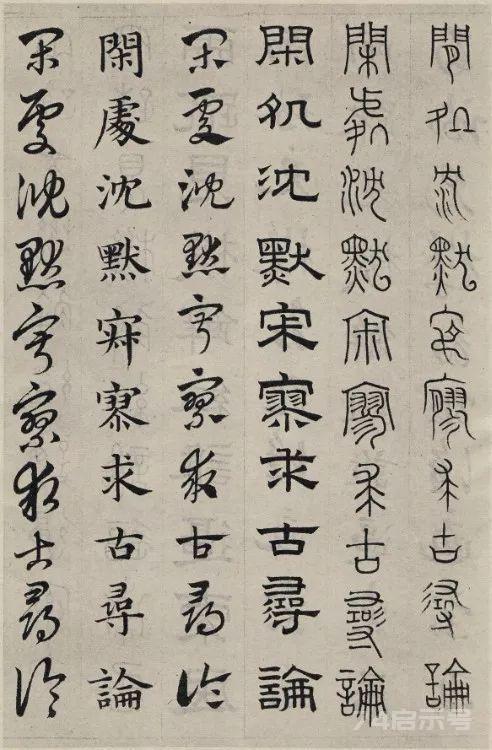 閒処沈默寂寥求古尋論
閑處沈默寂寥求古尋論
閑処沈默寂寥求古尋論
閑處沈默寂寥求古尋論
閑處沈默寂寥求古尋論
閑處沈默寂寥求古尋論
启示号